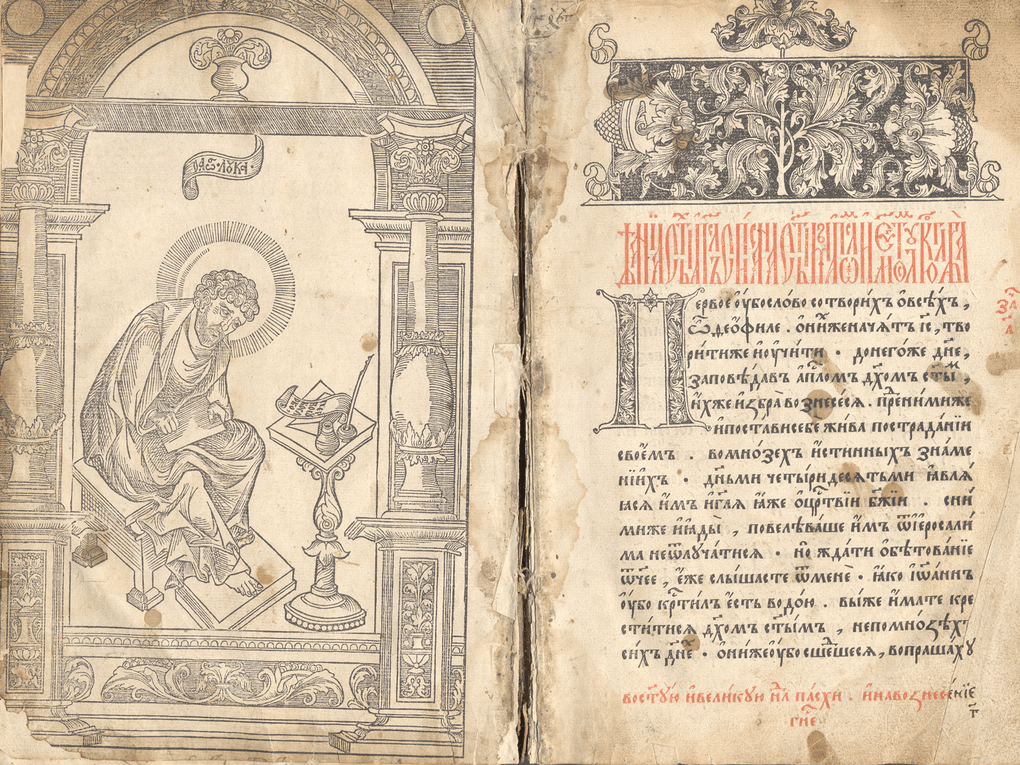 лꙋка
Первое ѹ҆бо слово сотворихъ ѡ҆всѣхъ,
ѽ д̾еѡ҆филе . ѡ҆ниⷯже начѧтъ і҃с, тво
рити же и҆ѹ҆чити · донегоже д҃не,
заповѣдавъ а҆пⷭ҇ломъ дх҃омъ ст҃ыⷨ,
и҆хже и҆збра вознесесѧ . преⷣними же
и҆ постави себе жива по страданїи
своѥмъ . во мнозехъ и҆стинныхъ знаме
нїихъ · д҃ньми четыридесѧтьми ꙗ҆влѧ
ꙗсѧ и҆мъ и҆ гл҃ѧ ꙗ҆же ѡ҆ црⷭ҇твїи бж҃їи . сни
миже и҆ꙗды , повелѣваше и҆мъ ѿ і҆еросали
ма не ѿлѹчатисѧ · но ждати ѡ҆бѣтованїе
ѿчее , е҆же слышасте ѿ мене · ꙗ҆ко і҆ѡ҆аннъ
ѹ҆бо крⷭ҇тилъ е҆сть водою . вы же и҆мате кре
ститисѧ дх҃омъ ст҃ымъ , не по мноѕѣхъ
сихъ д҃не · ѡ҆ни же ѹ҆бо сшеⷣшесѧ, вопрашахꙋ
во ст҃ꙋю и҆ великꙋю нⷧ҇ѧ пасхи . и҆ на вознесенїе
гн҃е